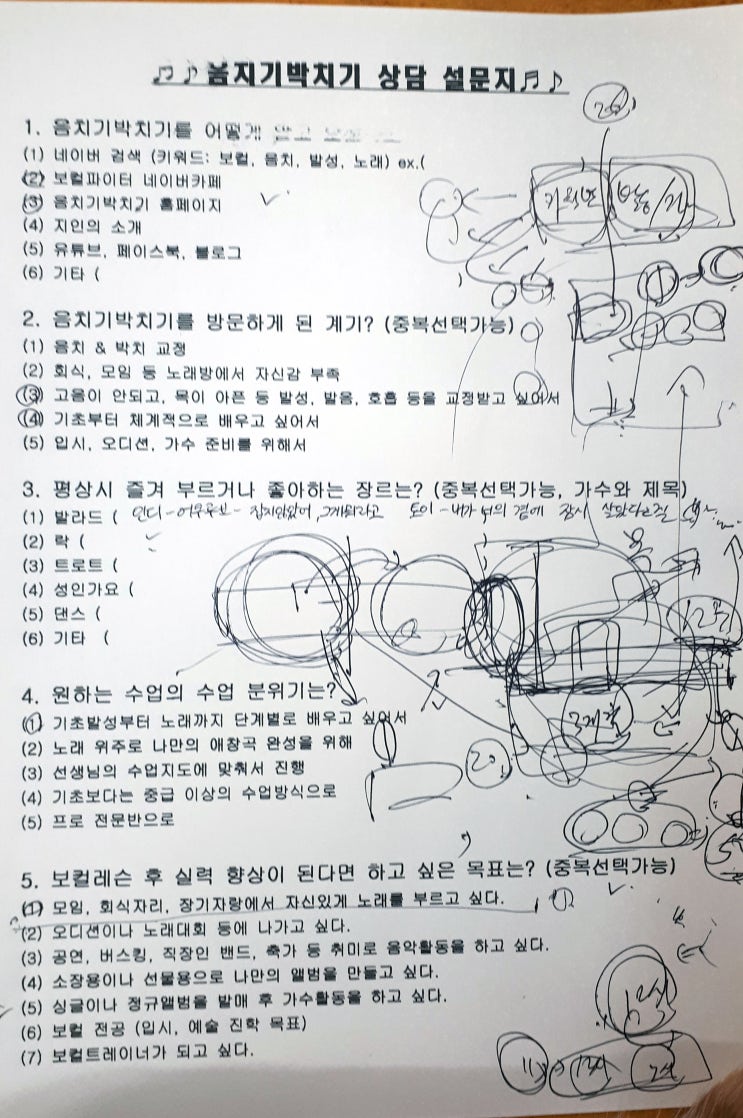 ♫♪음치기박치기 상담 설문지♬♪
1. 음치기박치기를 어떻게 알고
(1) 네이버 검색 (키워드: 보컬, 음치, 발성, 노래) ex.(
(2) 보컬파이터 네이버카페
(3) 음치기박치기 홈페이지 ✓
(4) 지인의 소개
(5) 유튜브, 페이스북, 블로그
(6) 기타 (
2. 음치기박치기를 방문하게 된 계기? (중복선택가능)
(1) 음치 & 박치 교정
(2) 회식, 모임 등 노래방에서 자신감 부족
(3) 고음이 안되고, 목이 아픈 등 발성, 발음, 호흡 등을 교정받고 싶어서
(4) 기초부터 체계적으로 배우고 싶어서
(5) 입시, 오디션, 가수 준비를 위해서
3. 평상시 즐겨 부르거나 좋아하는 장르는? (중복선택가능, 가수와 제목)
(1) 발라드 ( 토이 - 내가 너의 곁에 잠시 살았다는걸
(2) 락 (
(3) 트로트 (
(4) 성인가요 (
(5) 댄스 (
(6) 기타 (
12
4. 원하는 수업의 수업 분위기는?
(1) 기초발성부터 노래까지 단계별로 배우고 싶어서
(2) 노래 위주로 나만의 애창곡 완성을 위해
(3) 선생님의 수업지도에 맞춰서 진행
20
(4) 기초보다는 중급 이상의 수업방식으로
(5) 프로 전문반으로
5. 보컬레슨 후 실력 향상이 된다면 하고 싶은 목표는? (중복선택가능)
(1) 모임, 회식자리, 장기자랑에서 자신있게 노래를 부르고 싶다.
(2) 오디션이나 노래대회 등에 나가고 싶다.
(3) 공연, 버스킹, 직장인 밴드, 축가 등 취미로 음악활동을 하고 싶다.
(4) 소장용이나 선물용으로 나만의 앨범을 만들고 싶다.
(5) 싱글이나 정규앨범을 발매 후 가수활동을 하고 싶다.
(6) 보컬 전공 (입시, 예술 진학 목표)
(7) 보컬트레이너가 되고 싶다.